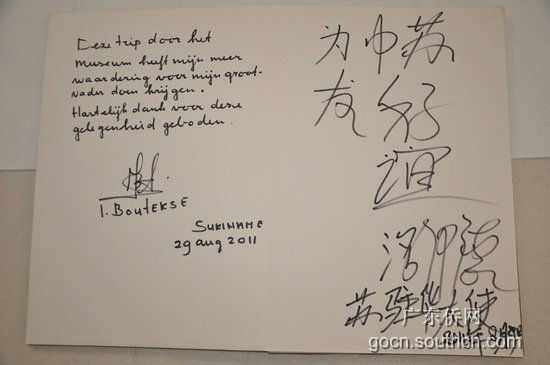 Deze trip door het
museum heeft mijn meer
waardering voor mijn groot-
vader doen krijgen.
Hartelijk dank voor deze
gelegenheid geboden.
I. BOUTERSE
SURINAME
29 aug 2011
为中苏
友好
谊
苏驻华大使
广东侨网
gocn.southcn.com